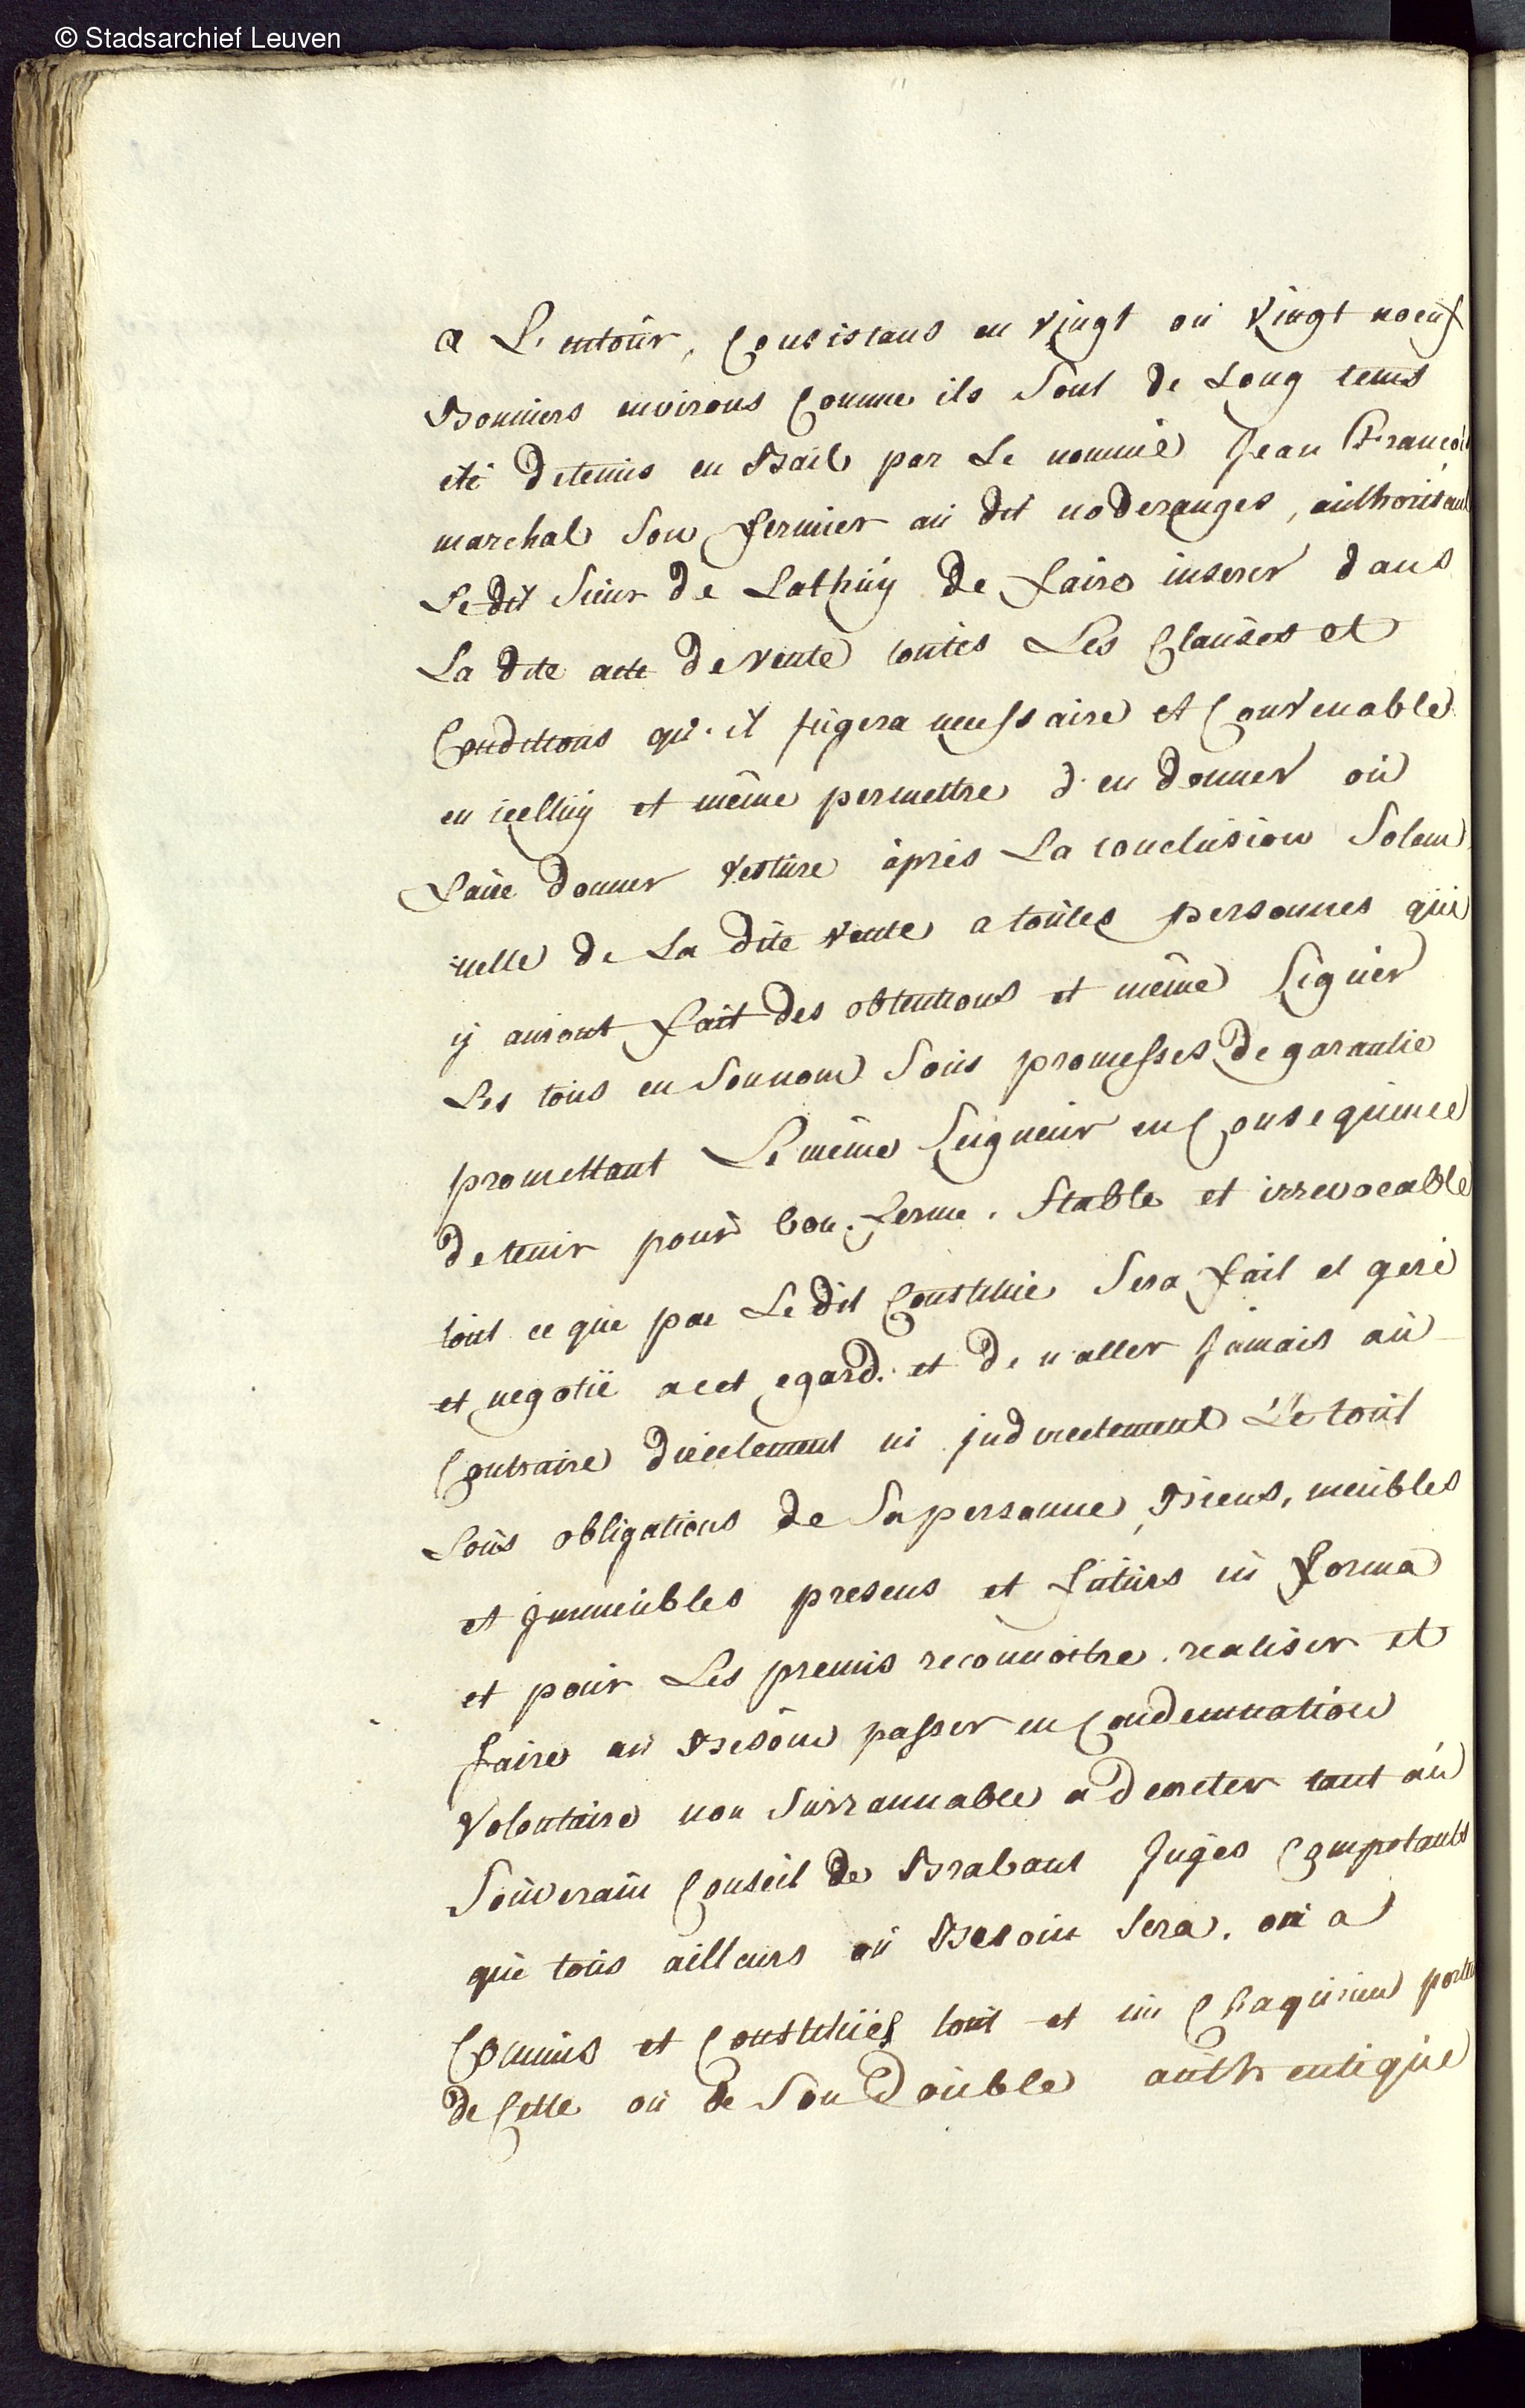 © Stadsarchief Leuven
a L'entour, Consistans en vingt ou vingt noeuf
Bonniers environs Comme ils sont de Long tems
eté detenus en Bail par Le nommé Jean Francois
marchal son fermier au dit noderanges, authorisant
Le dit sieur de Lathuy de faire inserer dans
La dite acte de vente toutes Les Clauses et
Conditions qu'il jugera necessaire et Convenable
en icelluy et même permettre d'en donner ou
faire donner vesture après La conclusion solem
nelle de La dite vente a toutes personnes qui
y auront fait des obtentions et même signer
Les tous en son nom sous promesses de garantie
promettant Le même seigneur en Consequence
de tenir pour bon. ferme. stable et irrevocable
tout ce que par Le dit Constitué sera fait et geré
et negotië a cet egard. et de n'aller jamais au
Contraire directement ni indirectement Le tout
sous obligations de sa personne, Biens, meubles
et immeubles presens et futurs in forma
et pour Les premis reconnoitre. realiser et
faire au Besoin passer en Condemnation
volontaire non surrannable a decreter tant au
souverain Conseil de Brabant juges Competants
que tous ailleurs ou Besoin sera. on a
Commis et Constitués tout et un Chaquun porteur
de Cette ou de son double authentique